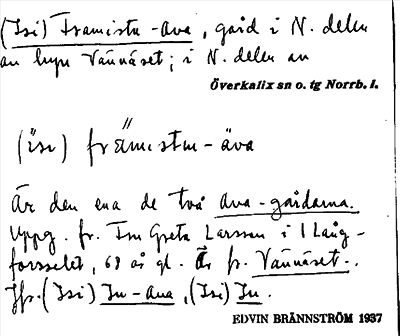 (Isi) Framistu-ava, gård i N. delen
av byn Vännäset; i N. delen av
Överkalix sn o. tg Norrb. l.
(isi) främistm-äva
Är den ena de två Ava-gårdarna.
Uppg. fr. Fru Greta Larsson i Lång-
forsselet, 68 år gl. Är fr. Vännäset.
Jfr. (Isi) In-ava, (Isi) In.
EDVIN BRÄNNSTRÖM 1937